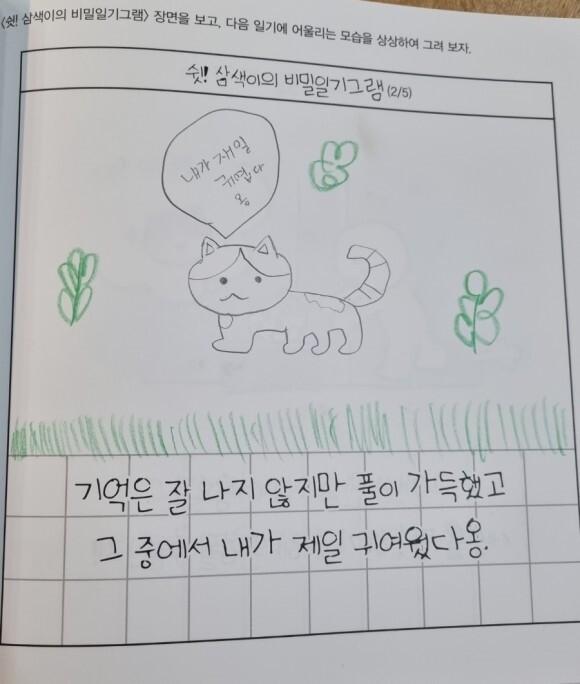 〈쉿! 삼색이의 비밀일기그램〉 장면을 보고, 다음 일기에 어울리는 모습을 상상하여 그려 보자.
쉿! 삼색이의 비밀일기그램 (2/5)
내가 재일
귀엽다
옹
기억은 잘 나지 않지만 풀이 가득했고
그 중에서 내가 제일 귀여웠다옹.